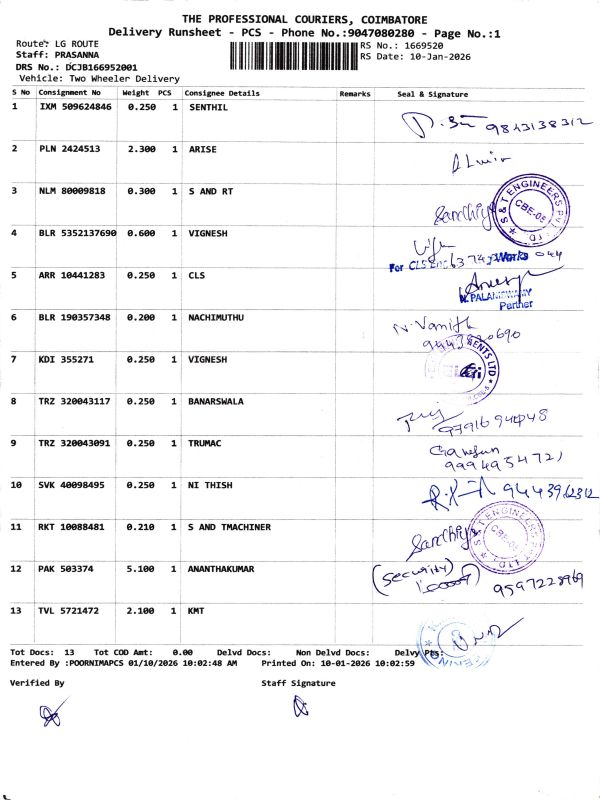 THE PROFESSIONAL COURIERS, COIMBATORE
Delivery Runsheet - PCS - Phone No.:9047080280 - Page No.:1
Route: LG ROUTE
RS No.: 1669520
Staff: PRASANNA
RS Date: 10-Jan-2026
DRS No.: DCJB166952001
Vehicle: Two Wheeler Delivery
S No Consignment No Weight PCS Consignee Details Remarks Seal & Signature
1 IXM 509624846 0.250 1 SENTHIL
9843138312
2 PLN 2424513 2.300 1 ARISE
3 NLM 80009818 0.300 1 S AND RT
Sandhiya
S & T ENGINEERS CBE-05
4 BLR 5352137690 0.600 1 VIGNESH
For CLS Works
5 ARR 10441283 0.250 1 CLS
N. PALANISWAMY
Partner
6 BLR 190357348 0.200 1 NACHIMUTHU
N. Vanith
7 KDI 355271 0.250 1 VIGNESH
8 TRZ 320043117 0.250 1 BANARSWALA
9791694048
9 TRZ 320043091 0.250 1 TRUMAC
Ganesan
9994954721
10 SVK 40098495 0.250 1 NI THISH
11 RKT 10088481 0.210 1 S AND TMACHINER
Sandhiya
S & T ENGINEERS CBE-05
12 PAK 503374 5.100 1 ANANTHAKUMAR
(Security)
9597228969
13 TVL 5721472 2.100 1 KMT
Tot Docs: 13 Tot COD Amt: 0.00 Delvd Docs: Non Delvd Docs: Delvy Pts:
Entered By :POORNIMAPCS 01/10/2026 10:02:48 AM Printed On: 10-01-2026 10:02:59
Verified By Staff Signature